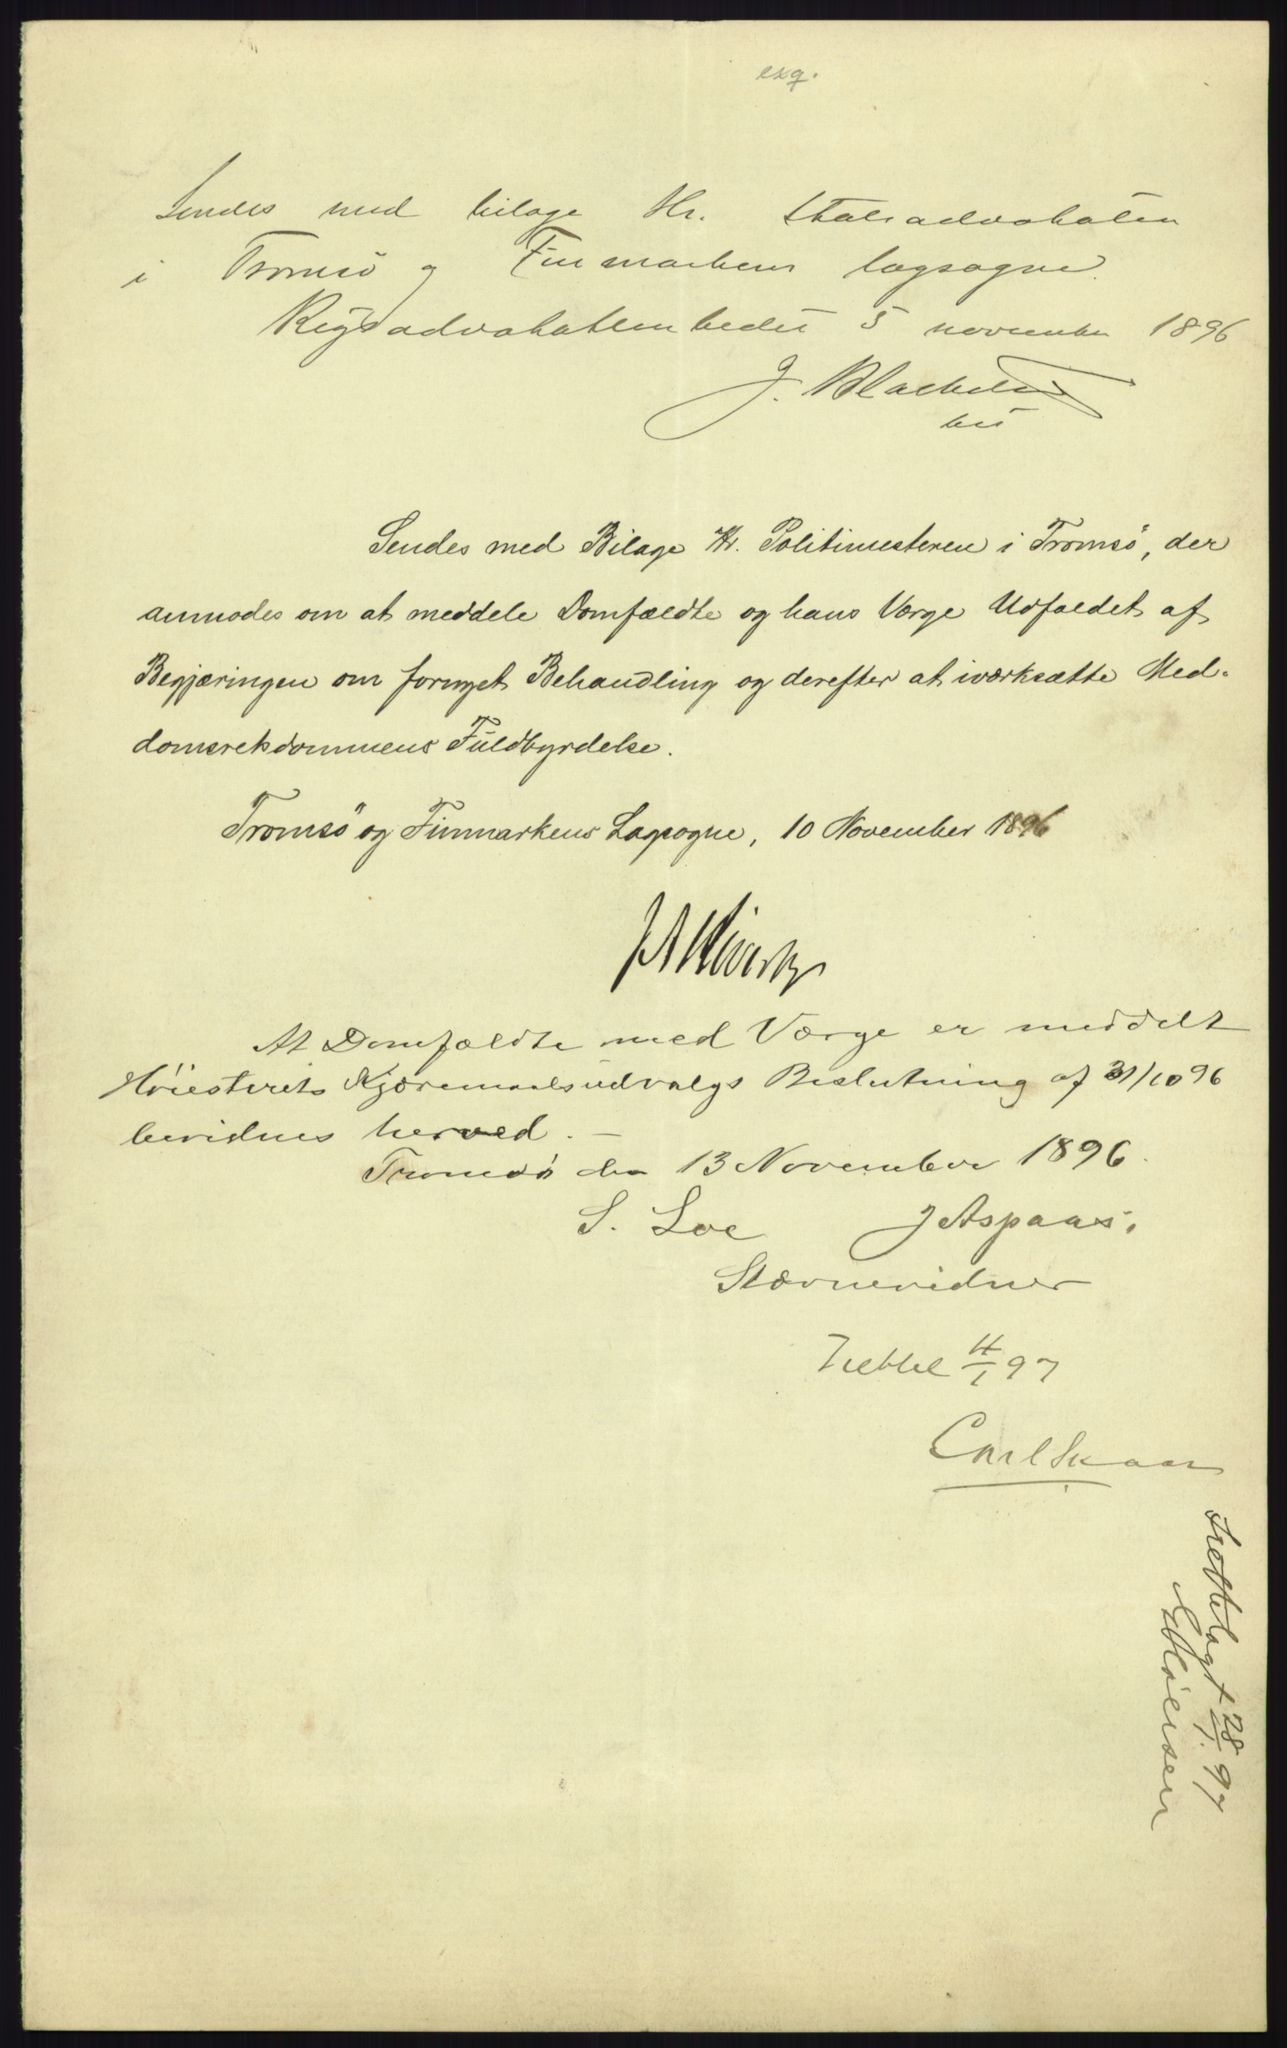 exq.
Sendes med bilage Hr. statsadvokaten
i Tromsö og Finmarkens lagsogne.
Rigsadvokatembedet 5 november 1896
J.
Sendes med Bilage Hr. Politimesteren i Tromsö, der
anmodes om at meddele Domfældte og hans Værge Udfaldet af
Begjæringen om fornyet Behandling og derefter at iværksætte Med-
domsretsdommens Fuldbyrdelse.
Tromsö og Finmarkens Lagsogne, 10 November 1896
At Domfældte med Værge er meddelt
Höiesterets Kjæremaalsudvalgs Beslutning af 31/10 96
bevidnes herved. —
Tromsö den 13 November 1896.
S. Loe J Aspaas.
Stævnevidner
97
Carl Skaar
Fremlagt 28/1. 97